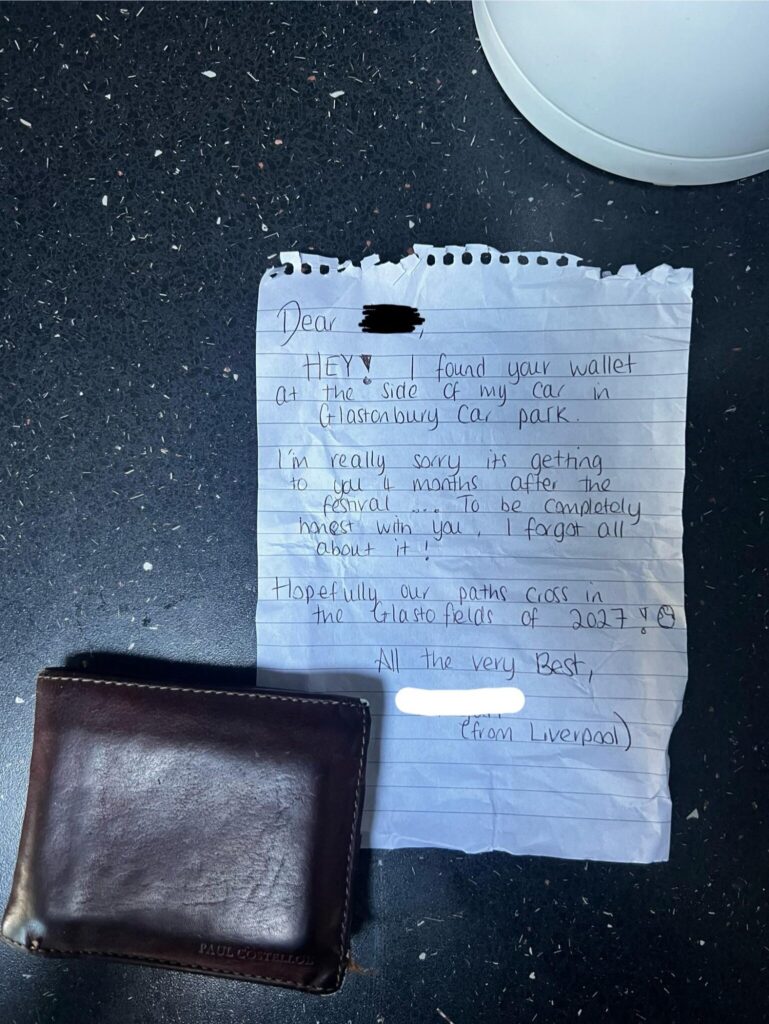 Dear ,
HEY! I found your wallet
at the side of my car in
Glastonbury Car park.
I'm really sorry its getting
to you 4 months after the
festival .... To be completely
honest with you, I forgot all
about it!
Hopefully our paths cross in
the Glasto fields of 2027! ☺
All the very Best,
(from Liverpool)
PAUL COSTELLOE